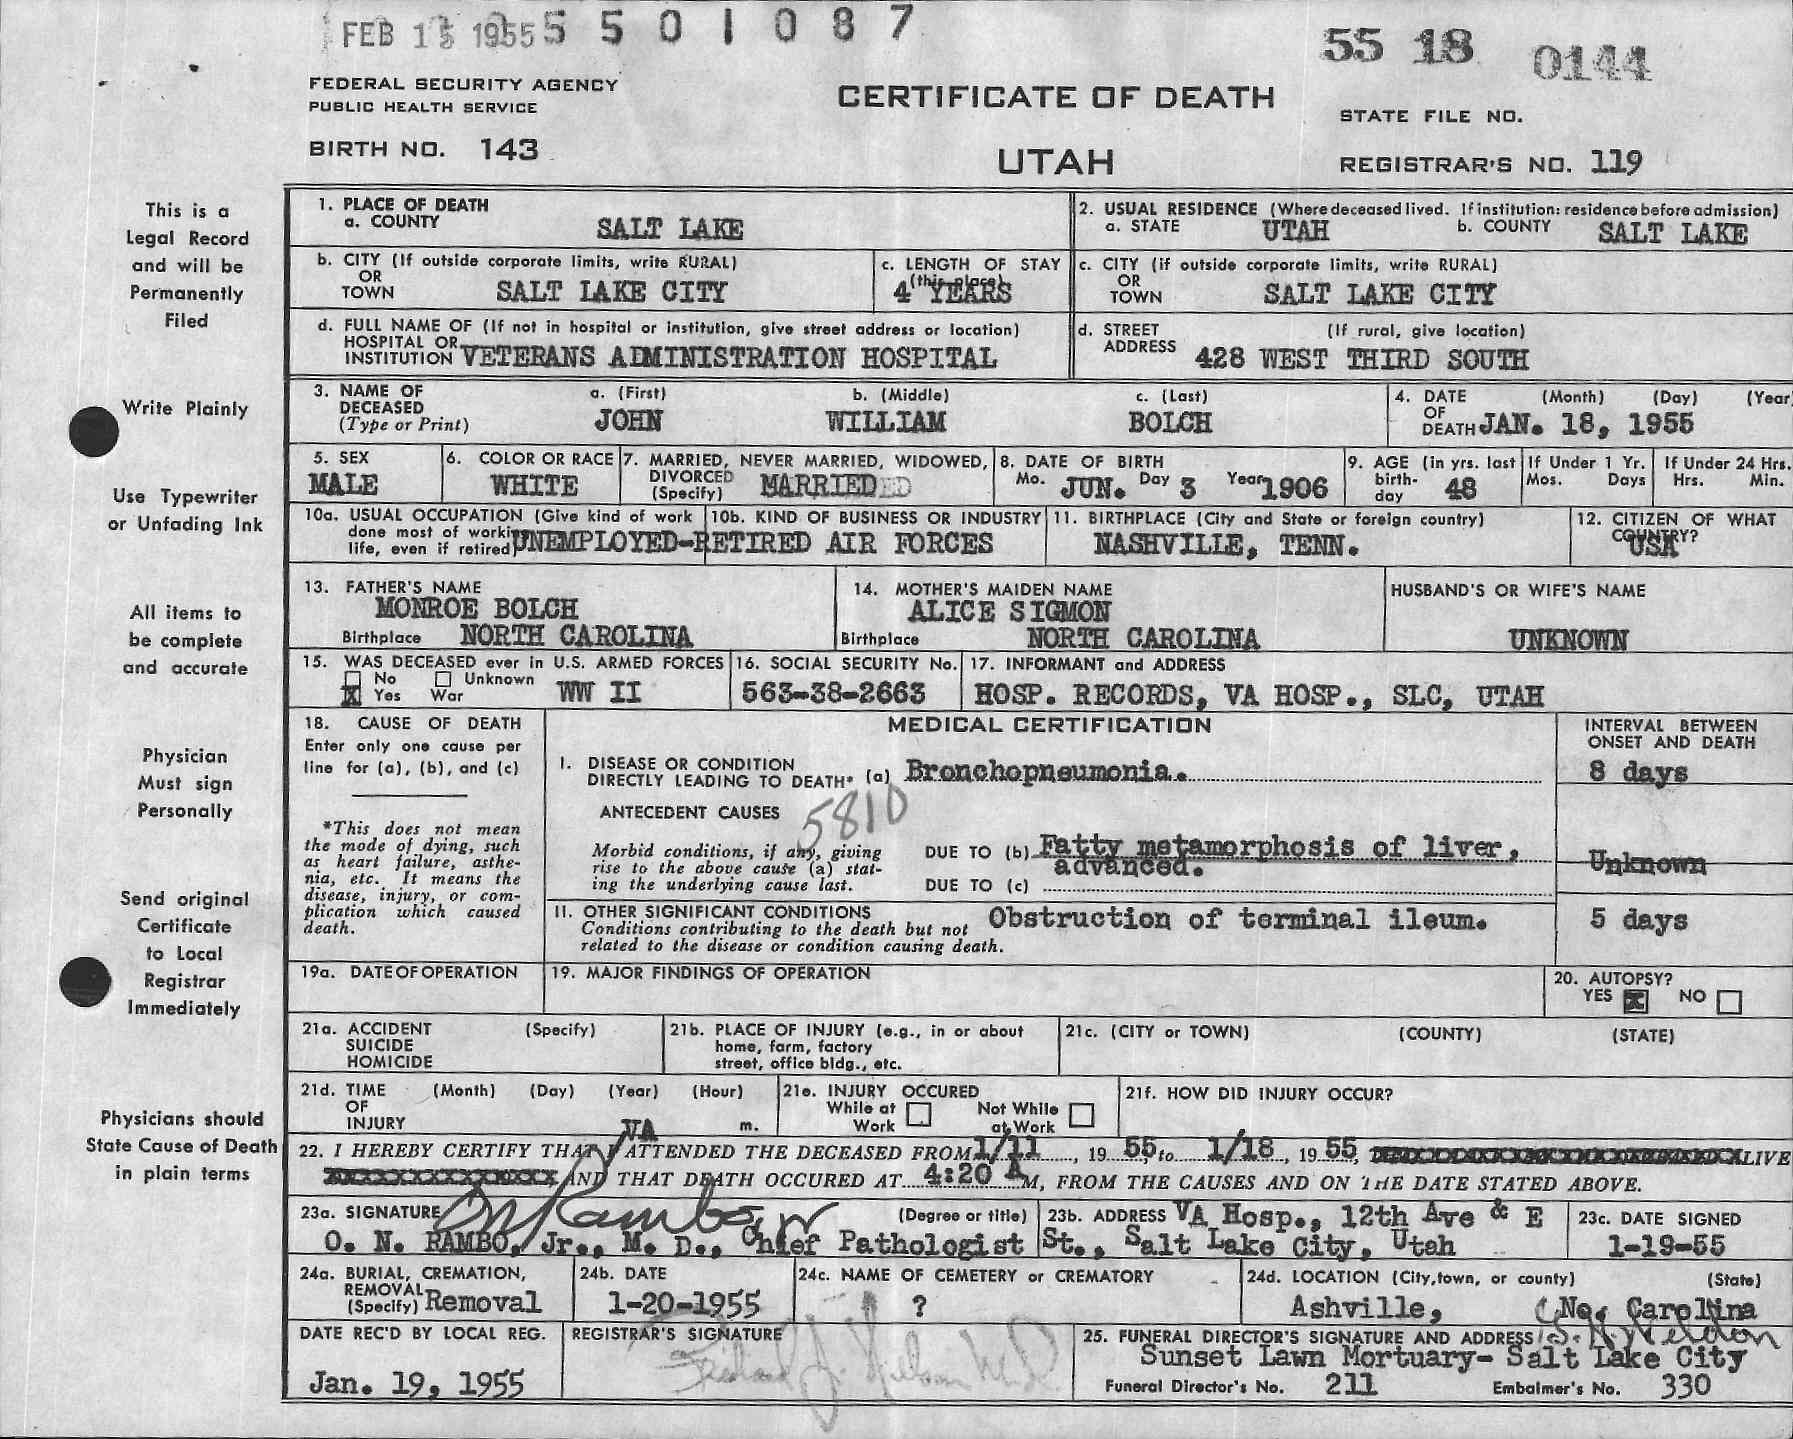 FEB 15 1955 5 5 0 1 0 8 7
55 18 0144
FEDERAL SECURITY AGENCY
PUBLIC HEALTH SERVICE
CERTIFICATE OF DEATH
STATE FILE NO.
BIRTH NO. 143
UTAH
REGISTRAR'S NO. 119
This is a
Legal Record
and will be
Permanently
Filed
Write Plainly
Use Typewriter
or Unfading Ink
All items to
be complete
and accurate
Physician
Must sign
Personally
Send original
Certificate
to Local
Registrar
Immediately
Physicians should
State Cause of Death
in plain terms
1. PLACE OF DEATH
a. COUNTY SALT LAKE
2. USUAL RESIDENCE (Where deceased lived. If institution: residence before admission)
a. STATE UTAH b. COUNTY SALT LAKE
b. CITY (If outside corporate limits, write RURAL)
OR
TOWN SALT LAKE CITY
c. LENGTH OF STAY
(this place)
4 YEARS
c. CITY (if outside corporate limits, write RURAL)
OR
TOWN SALT LAKE CITY
d. FULL NAME OF (If not in hospital or institution, give street address or location)
HOSPITAL OR
INSTITUTION VETERANS ADMINISTRATION HOSPITAL
d. STREET (If rural, give location)
ADDRESS 428 WEST THIRD SOUTH
3. NAME OF a. (First) b. (Middle) c. (Last)
DECEASED
(Type or Print) JOHN WILLIAM BOLCH
4. DATE (Month) (Day) (Year
OF
DEATH JAN. 18, 1955
5. SEX
MALE
6. COLOR OR RACE
WHITE
7. MARRIED, NEVER MARRIED, WIDOWED,
DIVORCED
(Specify) MARRIED
8. DATE OF BIRTH
Mo. JUN. Day 3 Year 1906
9. AGE (in yrs. last
birth-
day 48
If Under 1 Yr.
Mos. Days
If Under 24 Hrs.
Hrs. Min.
10a. USUAL OCCUPATION (Give kind of work
done most of working
life, even if retired)
10b. KIND OF BUSINESS OR INDUSTRY
UNEMPLOYED-RETIRED AIR FORCES
11. BIRTHPLACE (City and State or foreign country)
NASHVILLE, TENN.
12. CITIZEN OF WHAT
COUNTRY?
USA
13. FATHER'S NAME
MONROE BOLCH
Birthplace NORTH CAROLINA
14. MOTHER'S MAIDEN NAME
ALICE SIGMON
Birthplace NORTH CAROLINA
HUSBAND'S OR WIFE'S NAME
UNKNOWN
15. WAS DECEASED ever in U.S. ARMED FORCES
No Unknown
X Yes War WW II
16. SOCIAL SECURITY No.
563-38-2663
17. INFORMANT and ADDRESS
HOSP. RECORDS, VA HOSP., SLC, UTAH
18. CAUSE OF DEATH
Enter only one cause per
line for (a), (b), and (c)
*This does not mean
the mode of dying, such
as heart failure, asthe-
nia, etc. It means the
disease, injury, or com-
plication which caused
death.
MEDICAL CERTIFICATION
INTERVAL BETWEEN
ONSET AND DEATH
I. DISEASE OR CONDITION
DIRECTLY LEADING TO DEATH* (a) Bronchopneumonia. 8 days
ANTECEDENT CAUSES 5810
Morbid conditions, if any, giving
rise to the above cause (a) stat-
ing the underlying cause last.
DUE TO (b) Fatty metamorphosis of liver, Unknown
advanced.
DUE TO (c)
II. OTHER SIGNIFICANT CONDITIONS Obstruction of terminal ileum. 5 days
Conditions contributing to the death but not
related to the disease or condition causing death.
19a. DATE OF OPERATION
19. MAJOR FINDINGS OF OPERATION
20. AUTOPSY?
YES X NO
21a. ACCIDENT (Specify)
SUICIDE
HOMICIDE
21b. PLACE OF INJURY (e.g., in or about
home, farm, factory
street, office bldg., etc.
21c. (CITY or TOWN) (COUNTY) (STATE)
21d. TIME (Month) (Day) (Year) (Hour)
OF
INJURY m.
21e. INJURY OCCURED
While at Not While
Work at Work
21f. HOW DID INJURY OCCUR?
VA
22. I HEREBY CERTIFY THAT I ATTENDED THE DECEASED FROM 1/11, 1955, to 1/18, 1955, ALIVE
AND THAT DEATH OCCURED AT 4:20 A M, FROM THE CAUSES AND ON THE DATE STATED ABOVE.
23a. SIGNATURE ON Rambo Jr (Degree or title)
O. N. RAMBO, Jr., M. D., Chief Pathologist
23b. ADDRESS VA Hosp., 12th Ave & E
St., Salt Lake City, Utah
23c. DATE SIGNED
1-19-55
24a. BURIAL, CREMATION,
REMOVAL
(Specify) Removal
24b. DATE
1-20-1955
24c. NAME OF CEMETERY or CREMATORY
?
24d. LOCATION (City, town, or county) (State)
Ashville, No. Carolina
DATE REC'D BY LOCAL REG.
Jan. 19, 1955
REGISTRAR'S SIGNATURE
25. FUNERAL DIRECTOR'S SIGNATURE AND ADDRESS
Sunset Lawn Mortuary- Salt Lake City
Funeral Director's No. 211 Embalmer's No. 330